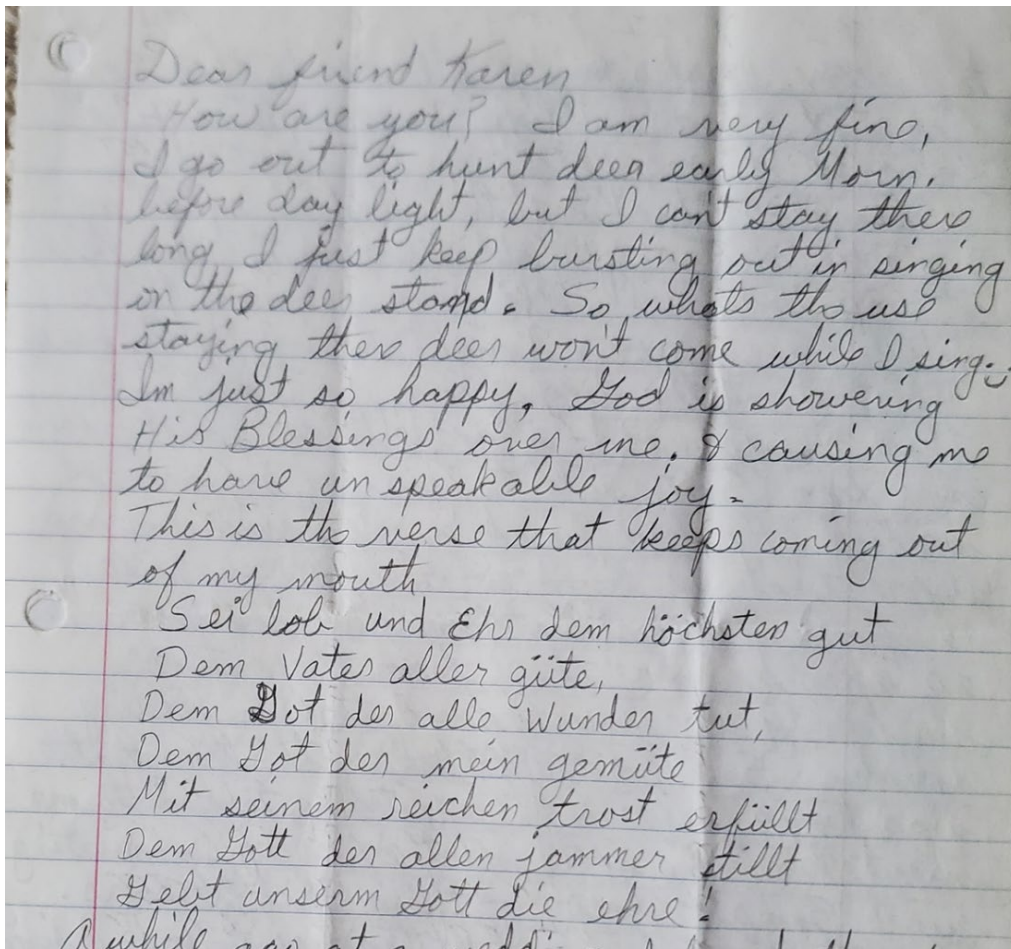 Dear friend Karen
How are you? I am very fine,
I go out to hunt deer early Morn.
before day light, but I can't stay there
long I just keep bursting out in singing
in the deer stand. So whats the use
staying there deer won't come while I sing.
Im just so happy. God is showering
His Blessings over me. & causing me
to have unspeakable joy.
This is the verse that keeps coming out
of my mouth
Sei lob und Ehr dem höchsten gut
Dem Vater aller güte,
Dem Got der alle Wunder tut,
Dem Got der mein gemüte
Mit seinem reichen trost erfüllt
Dem Gott der allen jammer stillt
Gebt unserm Gott die ehre!
A while ago at a